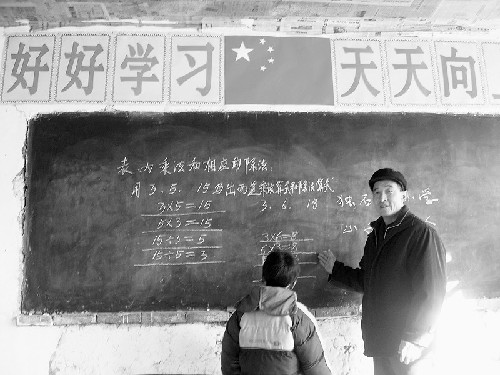 好好学习 天天向
表内乘法和相应的除法:
用 3、5、15写出两道乘法算式和除法算式
3×5=15
5×3=15
15÷3=5
15÷5=3
3、6、18